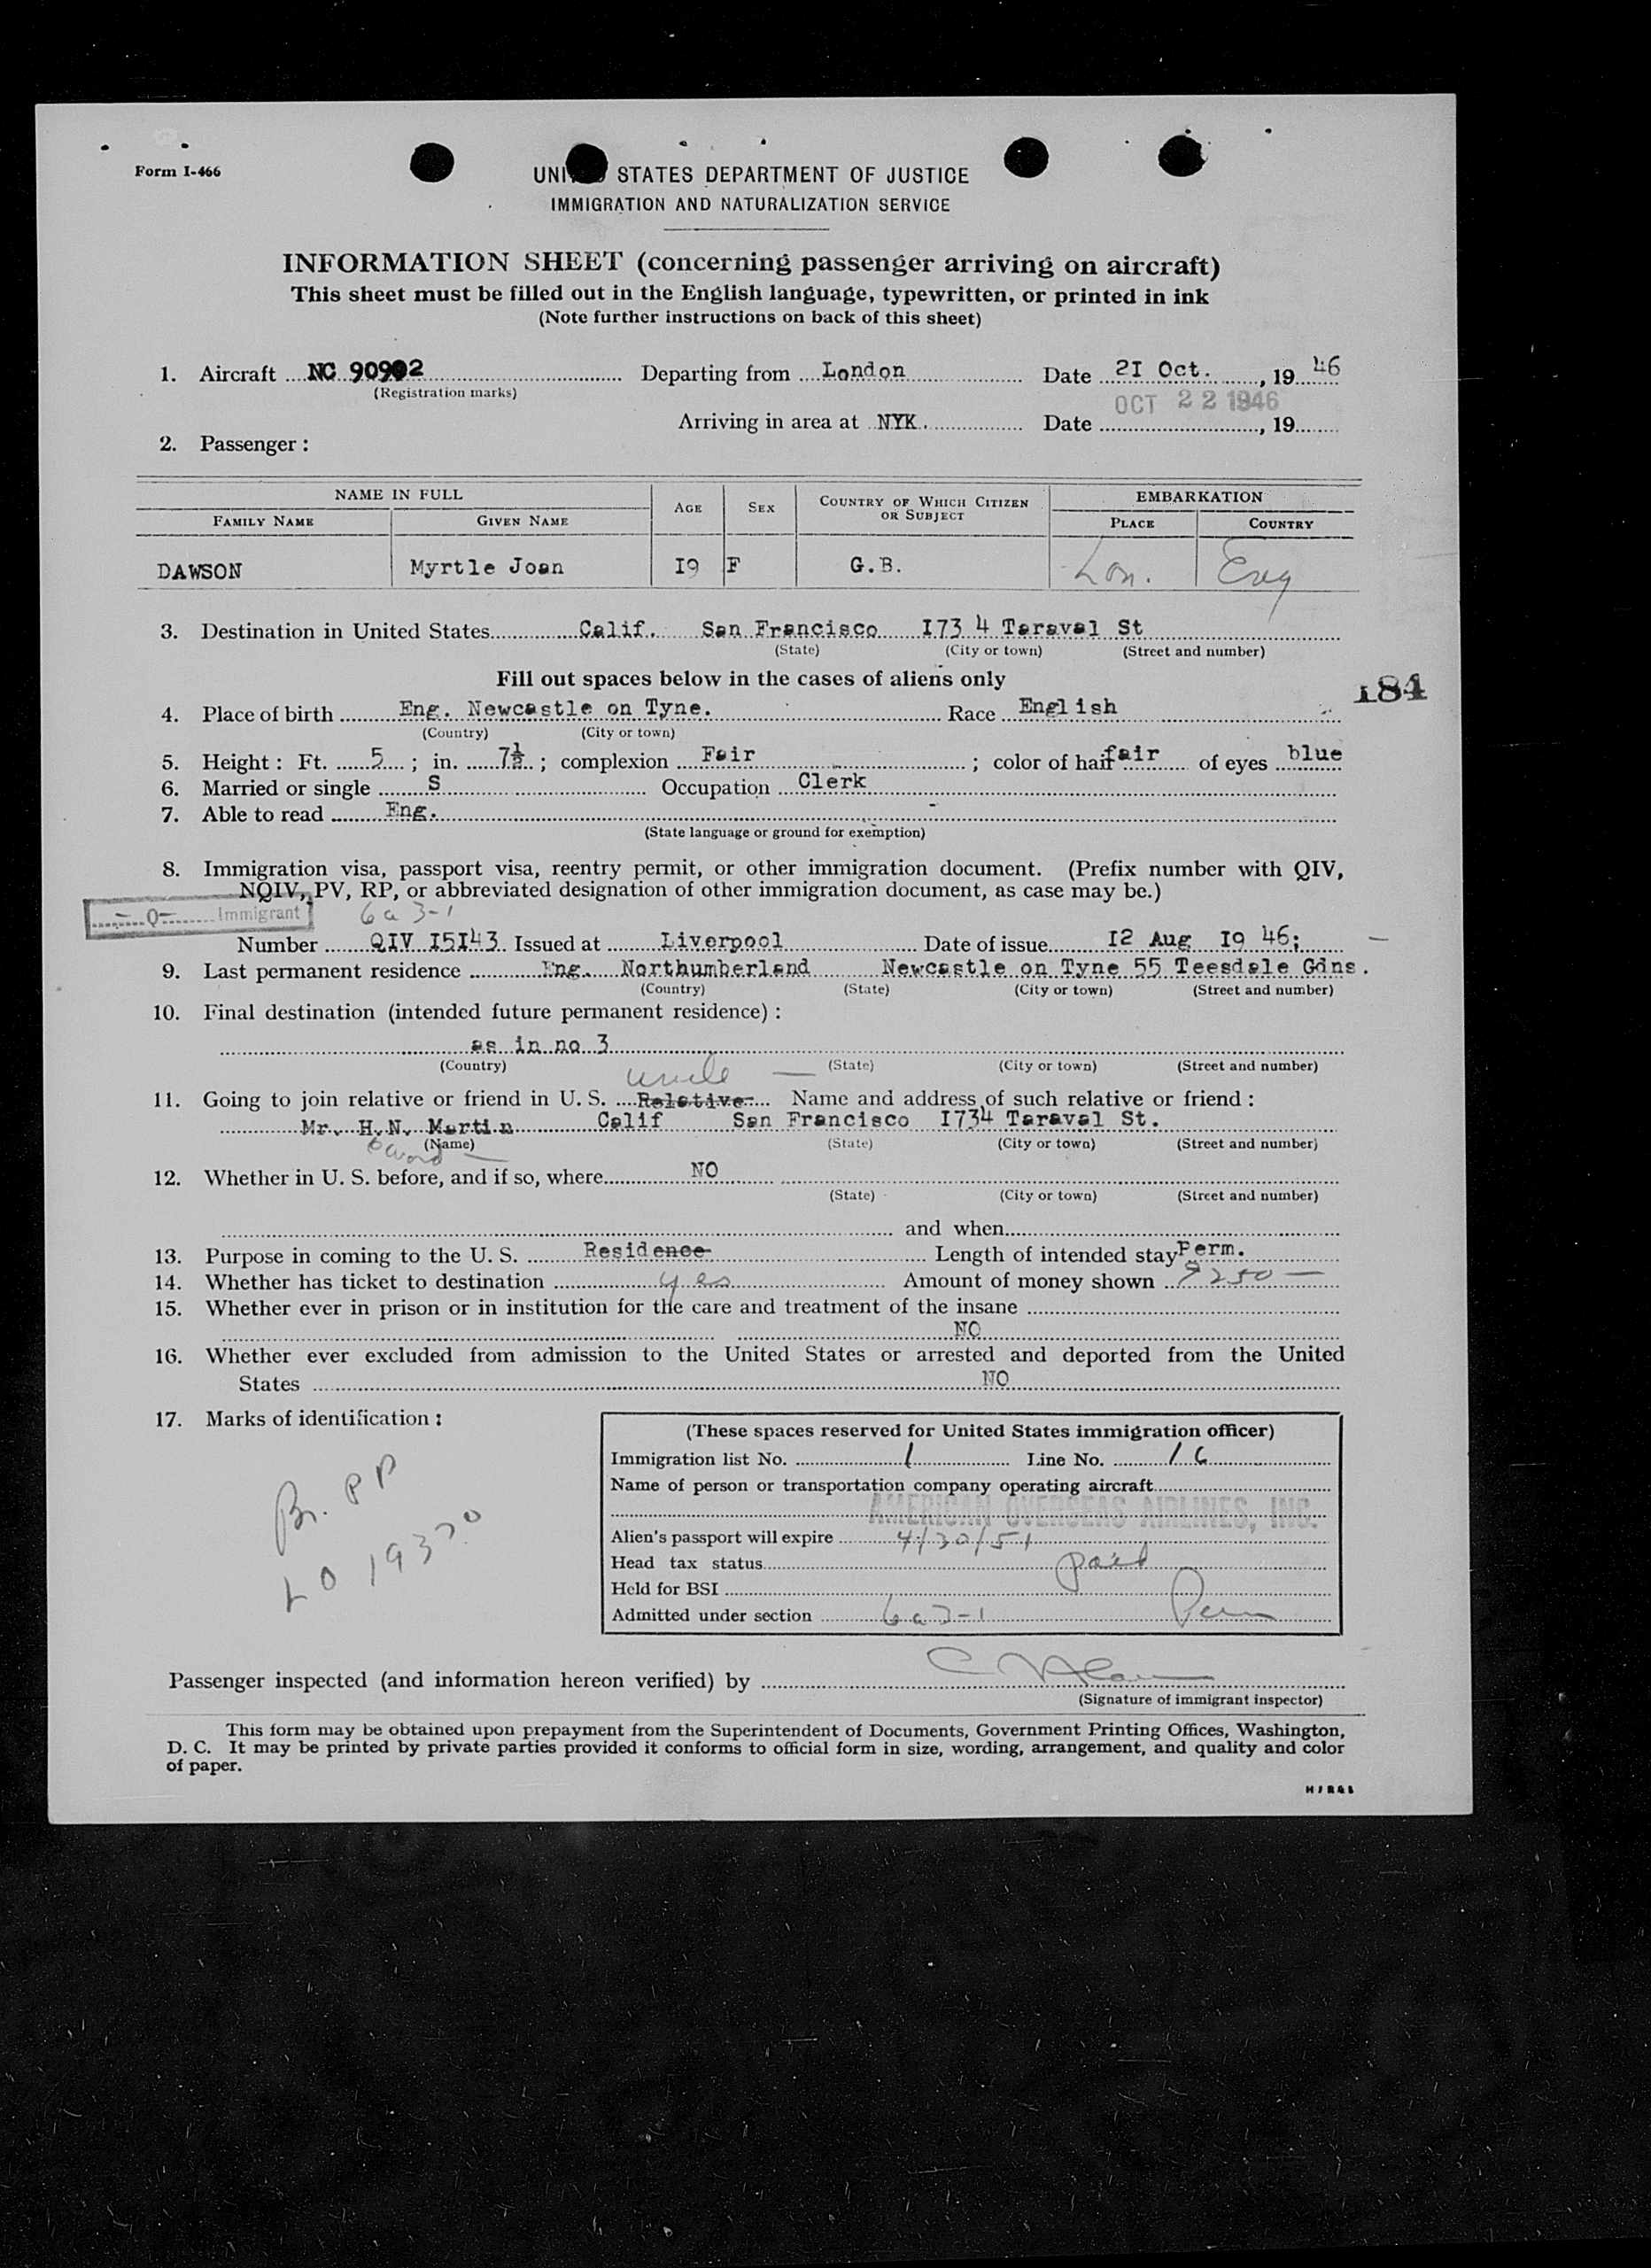 Form I-466
UNITED STATES DEPARTMENT OF JUSTICE
IMMIGRATION AND NATURALIZATION SERVICE
INFORMATION SHEET (concerning passenger arriving on aircraft)
This sheet must be filled out in the English language, typewritten, or printed in ink
(Note further instructions on back of this sheet)
1. Aircraft NC 90902 Departing from London Date 2I Oct., 19 46
(Registration marks)
OCT 22 1946
Arriving in area at NYK. Date , 19
2. Passenger:
NAME IN FULL AGE SEX COUNTRY OF WHICH CITIZEN OR SUBJECT EMBARKATION
FAMILY NAME GIVEN NAME PLACE COUNTRY
DAWSON Myrtle Joan I9 F G.B. Lon. Eng
3. Destination in United States Calif. San Francisco I73 4 Taraval St
(State) (City or town) (Street and number)
Fill out spaces below in the cases of aliens only
184
4. Place of birth Eng. Newcastle on Tyne. Race English
(Country) (City or town)
5. Height: Ft. 5 ; in. 7½ ; complexion Fair ; color of hair fair of eyes blue
6. Married or single S Occupation Clerk
7. Able to read Eng.
(State language or ground for exemption)
8. Immigration visa, passport visa, reentry permit, or other immigration document. (Prefix number with QIV,
NQIV, PV, RP, or abbreviated designation of other immigration document, as case may be.)
-Q- Immigrant 6a 3-1
Number QIV I5I43 Issued at Liverpool Date of issue I2 Aug I9 46;
9. Last permanent residence Eng. Northumberland Newcastle on Tyne 55 Teesdale Gdns.
(Country) (State) (City or town) (Street and number)
10. Final destination (intended future permanent residence):
as in no 3
(Country) (State) (City or town) (Street and number)
uncle —
11. Going to join relative or friend in U. S. Relative Name and address of such relative or friend:
Mr. H.N. Martin Calif San Francisco I734 Taraval St.
(Name) (State) (City or town) (Street and number)
12. Whether in U. S. before, and if so, where NO
(State) (City or town) (Street and number)
and when
13. Purpose in coming to the U. S. Residence Length of intended stay Perm.
14. Whether has ticket to destination yes Amount of money shown 250 —
15. Whether ever in prison or in institution for the care and treatment of the insane
NO
16. Whether ever excluded from admission to the United States or arrested and deported from the United
States NO
17. Marks of identification:
Br. PP
LO 19370
(These spaces reserved for United States immigration officer)
Immigration list No. 1 Line No. 16
Name of person or transportation company operating aircraft
AMERICAN OVERSEAS AIRLINES, INC.
Alien's passport will expire 4/30/51
Head tax status paid
Held for BSI
Admitted under section 6a3-1 Perm
Passenger inspected (and information hereon verified) by
(Signature of immigrant inspector)
This form may be obtained upon prepayment from the Superintendent of Documents, Government Printing Offices, Washington,
D. C. It may be printed by private parties provided it conforms to official form in size, wording, arrangement, and quality and color
of paper.